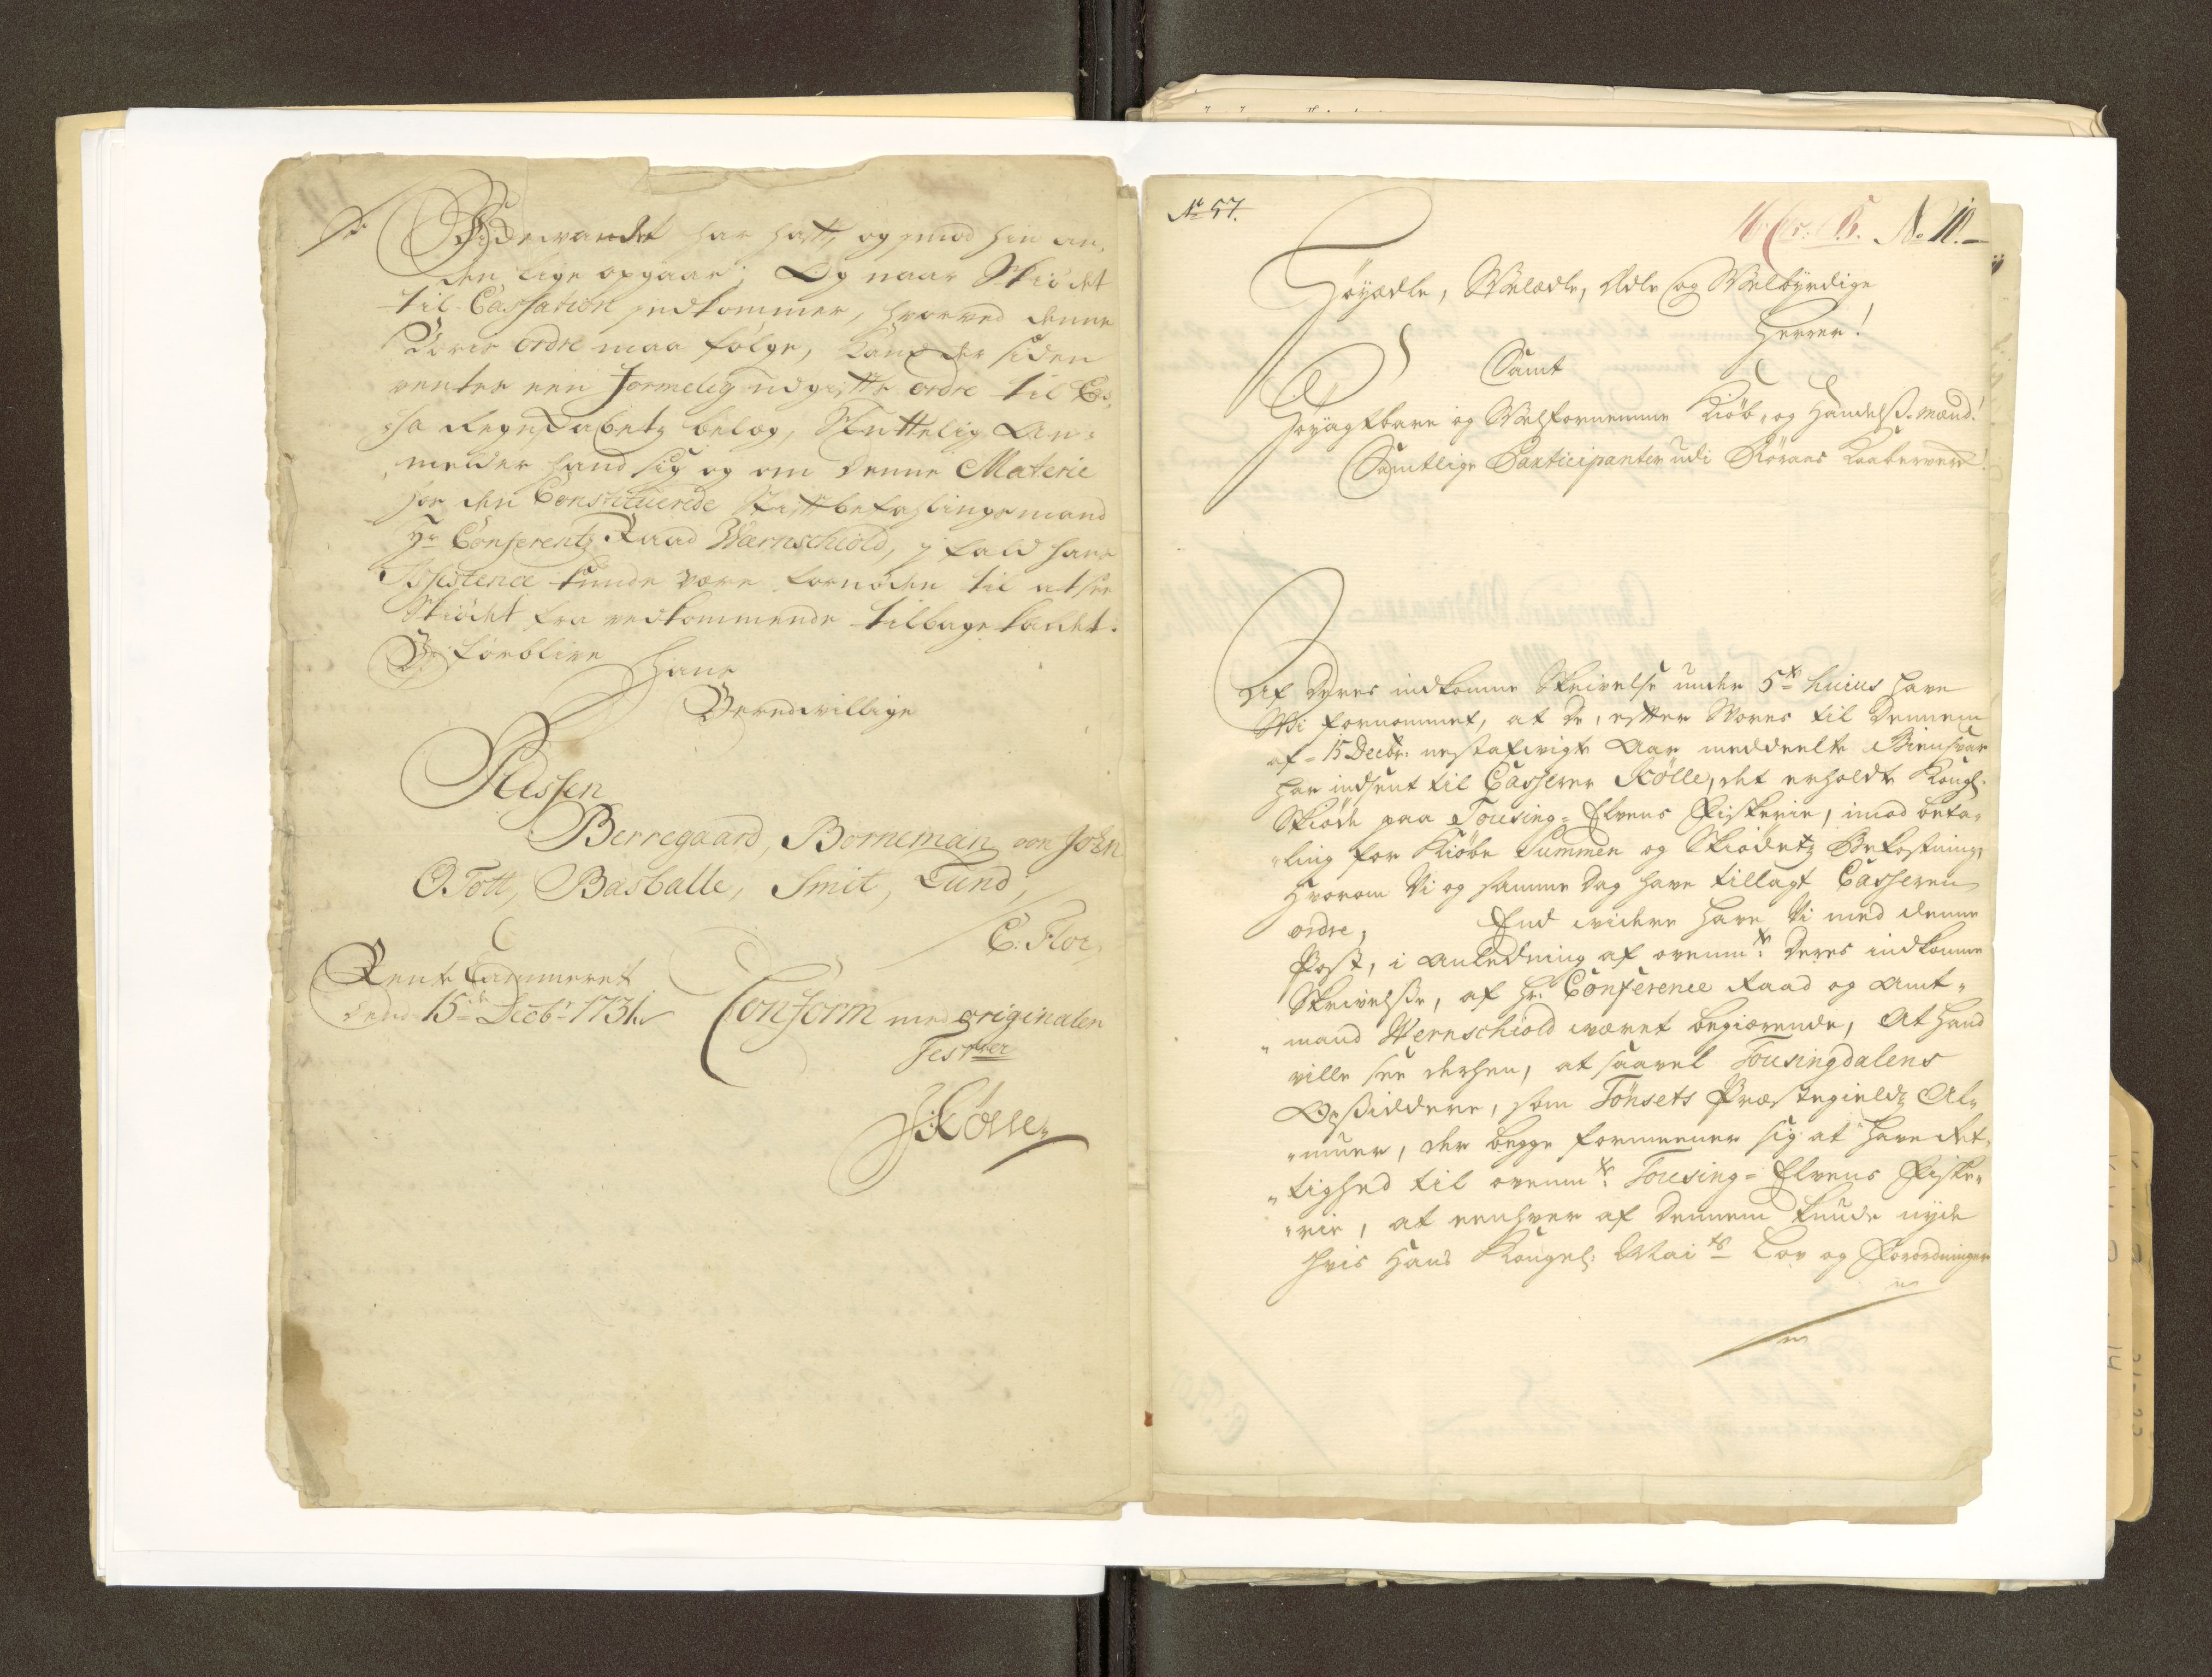 Fiskevandet har hafft, og imod hin an,
den lige opgaar; Og naar Skiødet
til Cassation indkommer, hvorved denne
Voris ordre maa følge, kand der siden
ventes een formelig udgifts ordre til Cas,
sa Regnskabetz belæg, Sluttelig An=
melder hand sig og om denne Materie
for den Constituerede Stiftbefahlingsmand
Hr Conferentz Raad Warnschiold, ifald hans
Assistence kunde være fornøden til at see
Skiødet fra vedkommende tilbage kaldet.
Vi forblive
Hans
Beredvillige
Plessen
Berregaard, Borneman, von John
O Tott, Basballe, Smit, Lund,
C: Flor,
Rente Cammeret
dend 15de Decbr 1731.
Conform med originalen
Test
J Kölle
No 57.
No 10.
Høyædle, Welædle, Ædle og Welbyrdige
Herrer!
Samt
Høyagtbare og Welfornemme Kiøb, og Handels. mænd!
Samtlige Participanter udi Røraas Kaaberverk!
Af Deres indkomne Skrivelse under 5te huius have
Wi fornommet, at De, efter Wores til Dennem
af 15 Decbr: nestafvigte Aar meddeelte Giensvar
har indsent til Casserer Kölle, det erholdte Kongl.
Skiøde paa Tousing=Elvens Fiskerie, imod beta,
"ling for Kiøbe Summen og Skiødetz Bekostning,
hvorom Vi og samme Dag have tillagt Casseren
ordre, End videre have Vi med denne
Post, i Anledning af ovenmte Deres indkomne
Skrivelse, af Hr. Conference Raad og Amt=
"mand Wernschiold været begiærende, At Hand
ville see derhen, at saavel Tousingdalens
Opsiddere, som Tönsets Præstegields Al,
"muer, der begge formeener sig at have Ret,
"tighed til ovenmte Tousing=Elvens Fiske,
"rie, at eenhver af Dennem kunde nyde
hvis Hans Kongel: Maits Lov og Forordninger